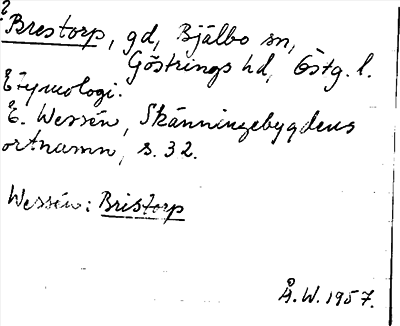 ? Brestorp, gd, Bjälbo sn,
Göstrings hd, Östg. l.
Etymologi.
E. Wessén, Skänningebygdens
ortnamn, s. 32.
Wessén: Bristorp
Å. W. 1957.